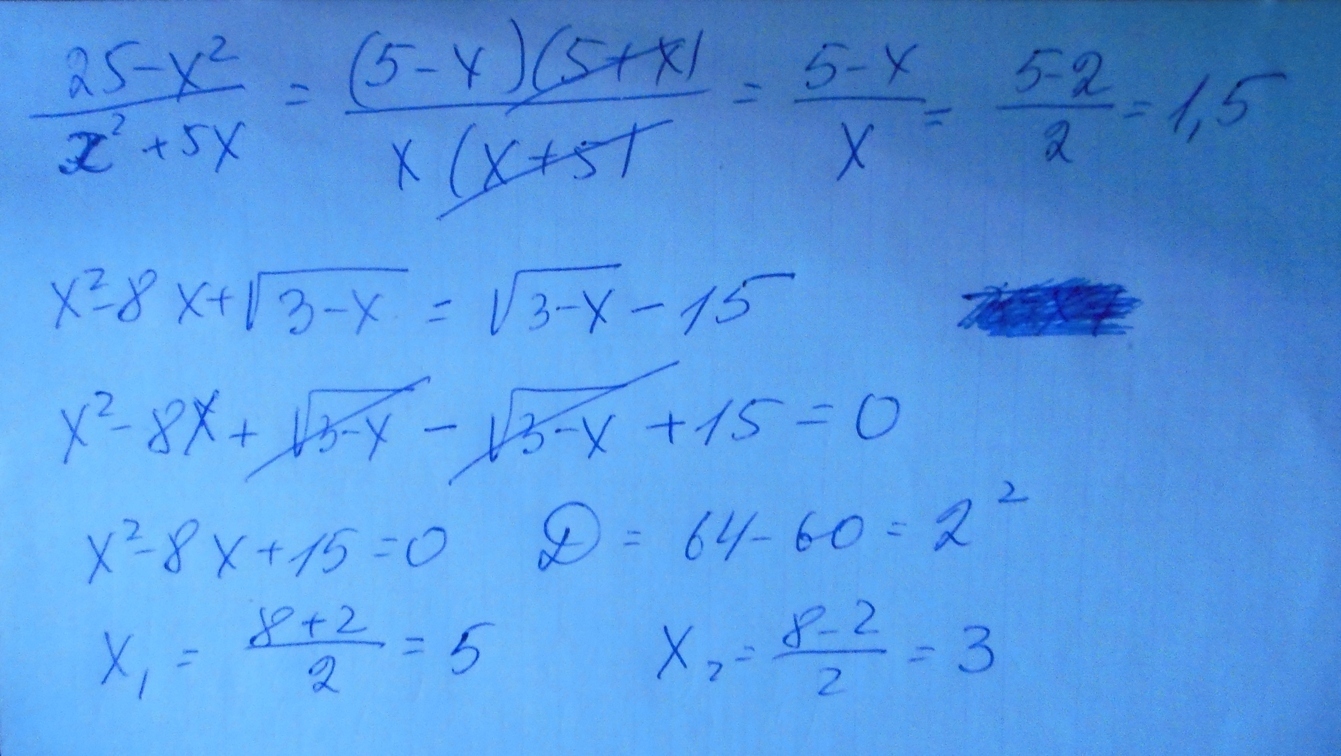 25-x²/x²+5x = (5-x)(5+x)/x(x+5) = 5-x/x = 5-2/2 = 1,5
x²-8x+√3-x = √3-x-15
x²-8x+√3-x-√3-x+15=0
x²-8x+15=0 D=64-60=2²
x₁=8+2/2=5 x₂=8-2/2=3